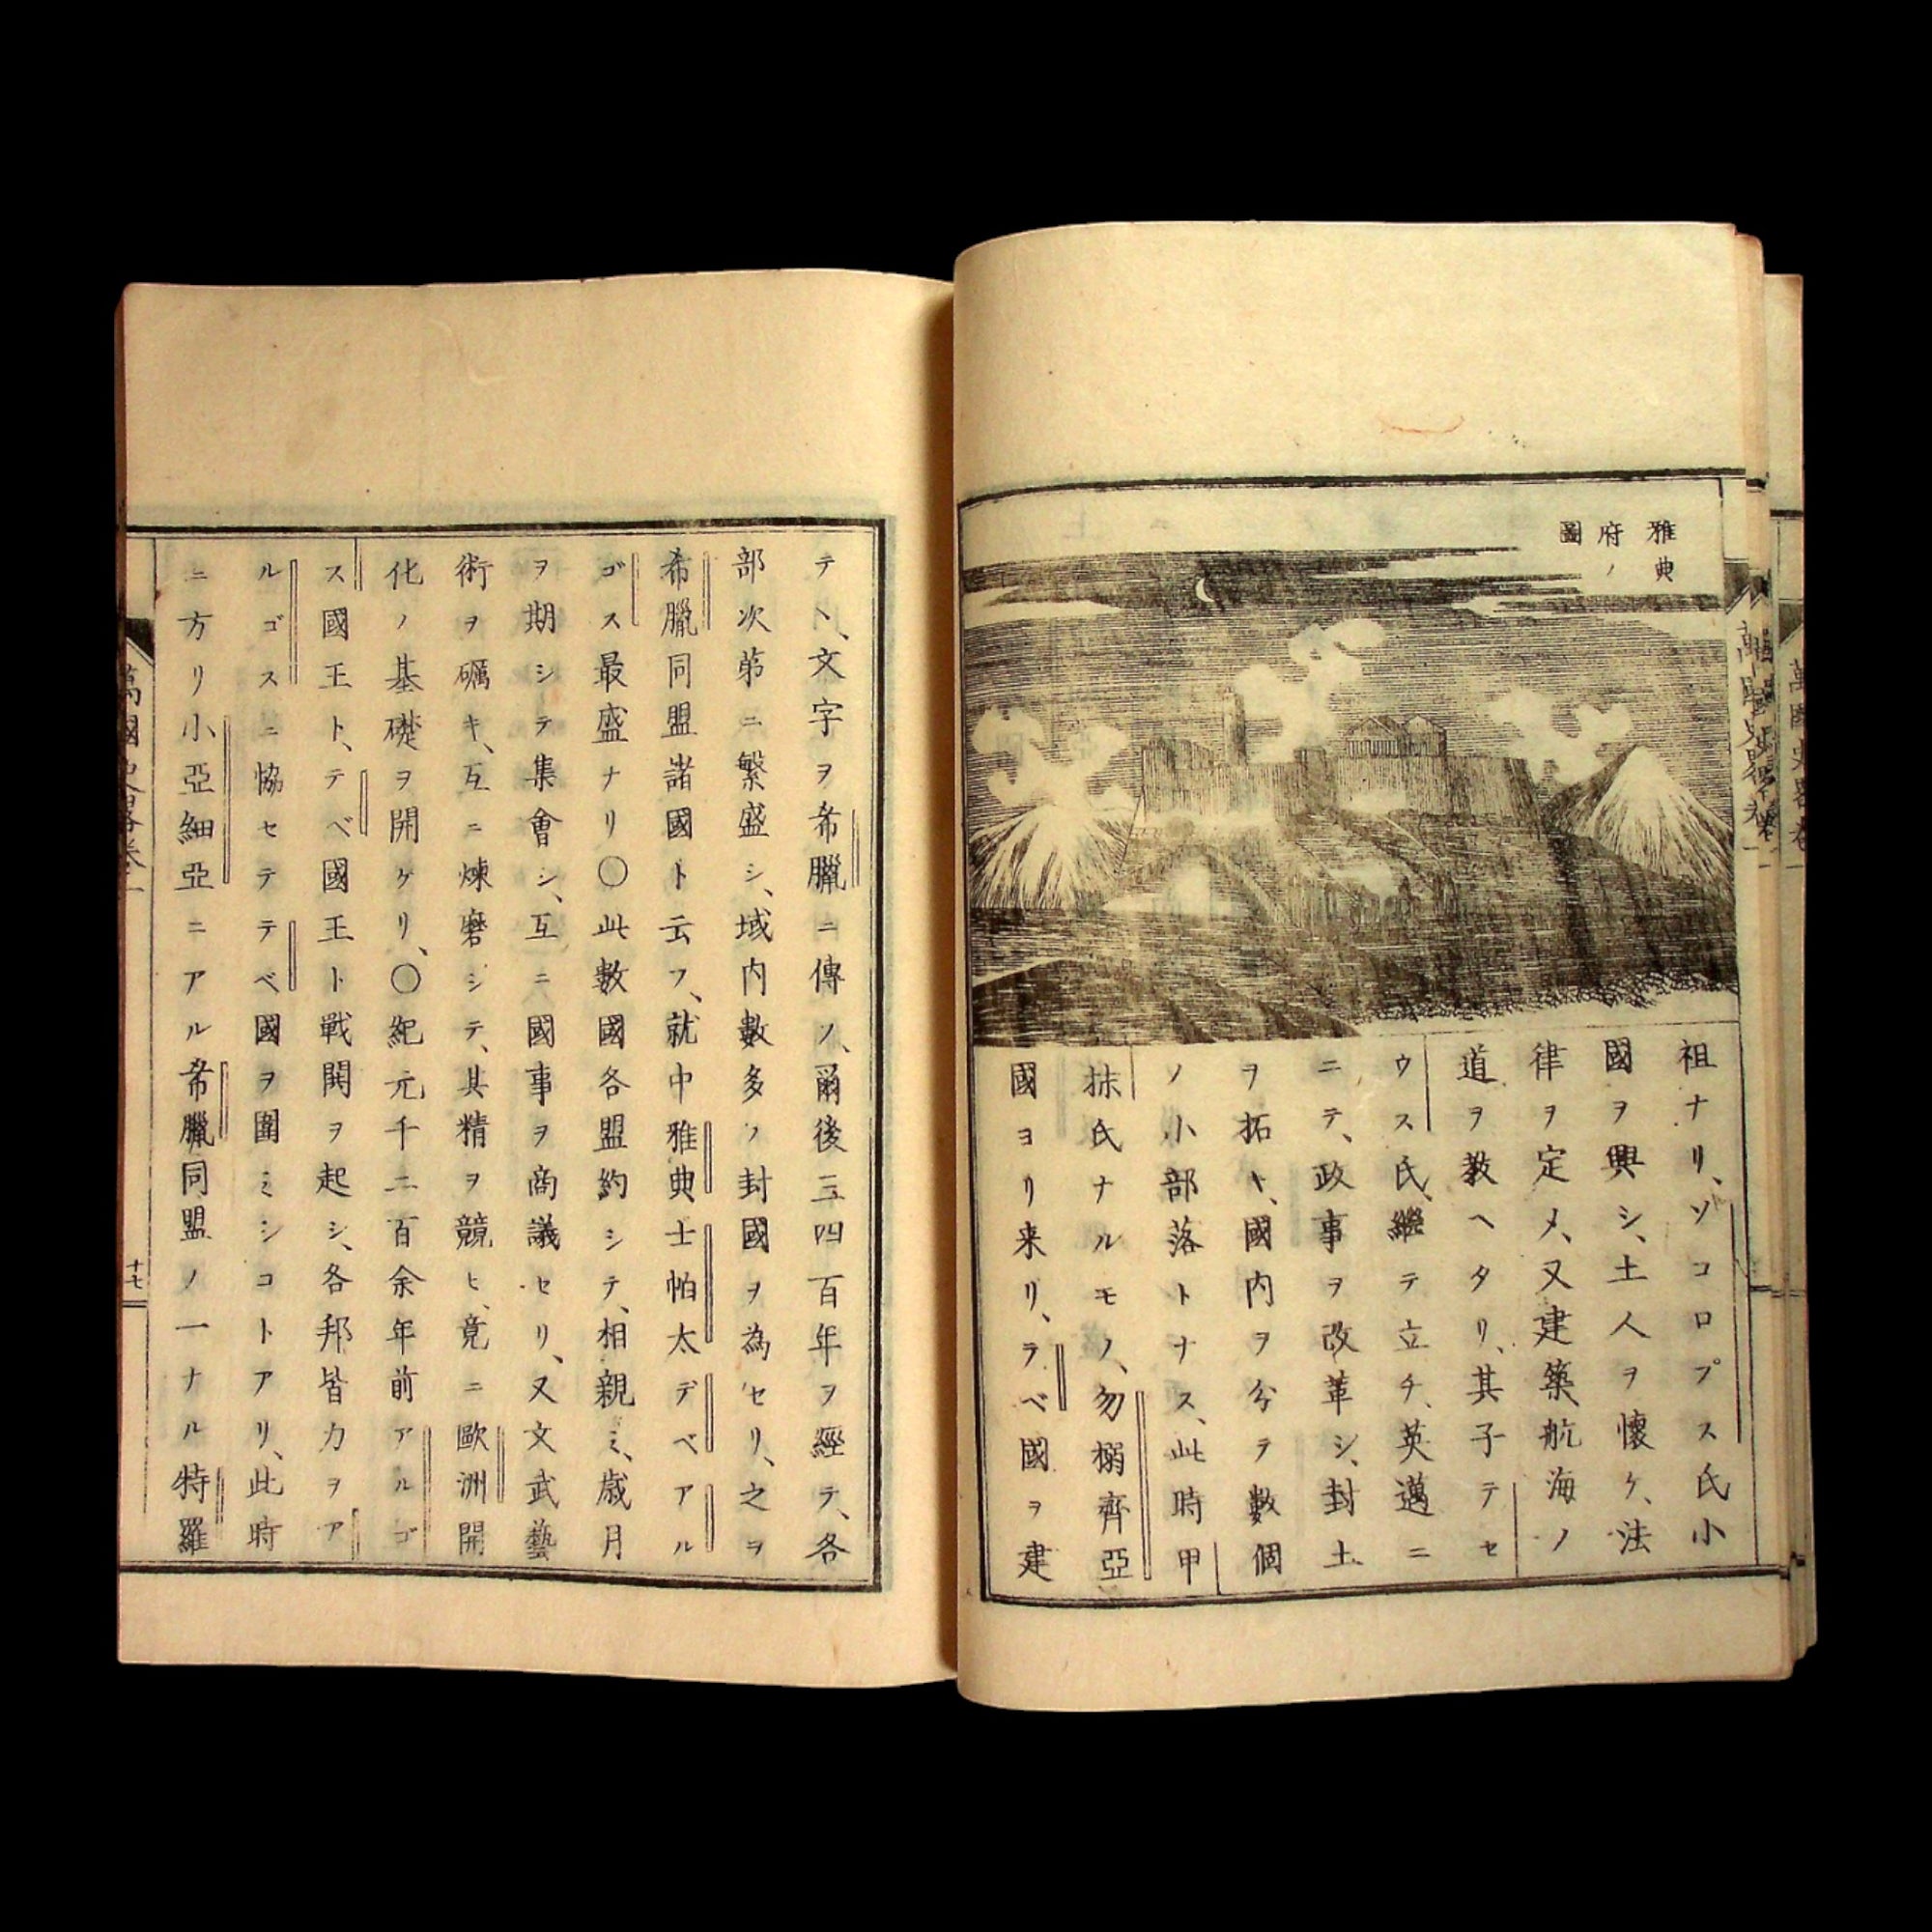 雅典
府ノ
圖
祖ナリ、ソコロプス氏小
國ヲ興シ、土人ヲ懷ケ、法
律ヲ定メ、又建築航海ノ
道ヲ教ヘタリ、其子テセ
ウス氏、繼テ立チ、英邁ニ
ニテ、政事ヲ改革シ、封土
ヲ拓キ、國内ヲ分ラ數個
ノ小部落トナス、此時甲
抹氏ナルモノ、勿搦齊亞
國ヨリ来リ、ラベ國ヲ建
テヽ、文字ヲ希臘ニ傳ノ、爾後三四百年ヲ經テ、各
部次第ニ繁盛シ、域内數多ノ封國ヲ為セリ、之ヲ
希臘同盟諸國ト云フ、就中雅典士帕太デベアル
ゴス最盛ナリ〇此數國各盟約シテ、相親ミ、歳月
ヲ期シテ集會シ、互ニ國事ヲ商議セリ、又文武藝
術ヲ礪キ、互ニ煉磨シテ、其精ヲ競ヒ、竟ニ歐洲開
化ノ基礎ヲ開ケリ、〇紀元千二百余年前アルゴ
ス國王ト、テベ國王ト戦鬨ヲ起シ、各邦皆力ヲア
ルゴスニ恊セテテベ國ヲ圍ミシコトアリ、此時
ニ方リ小亞細亞ニアル希臘同盟ノ一ナル特羅
萬國史畧卷一
十七